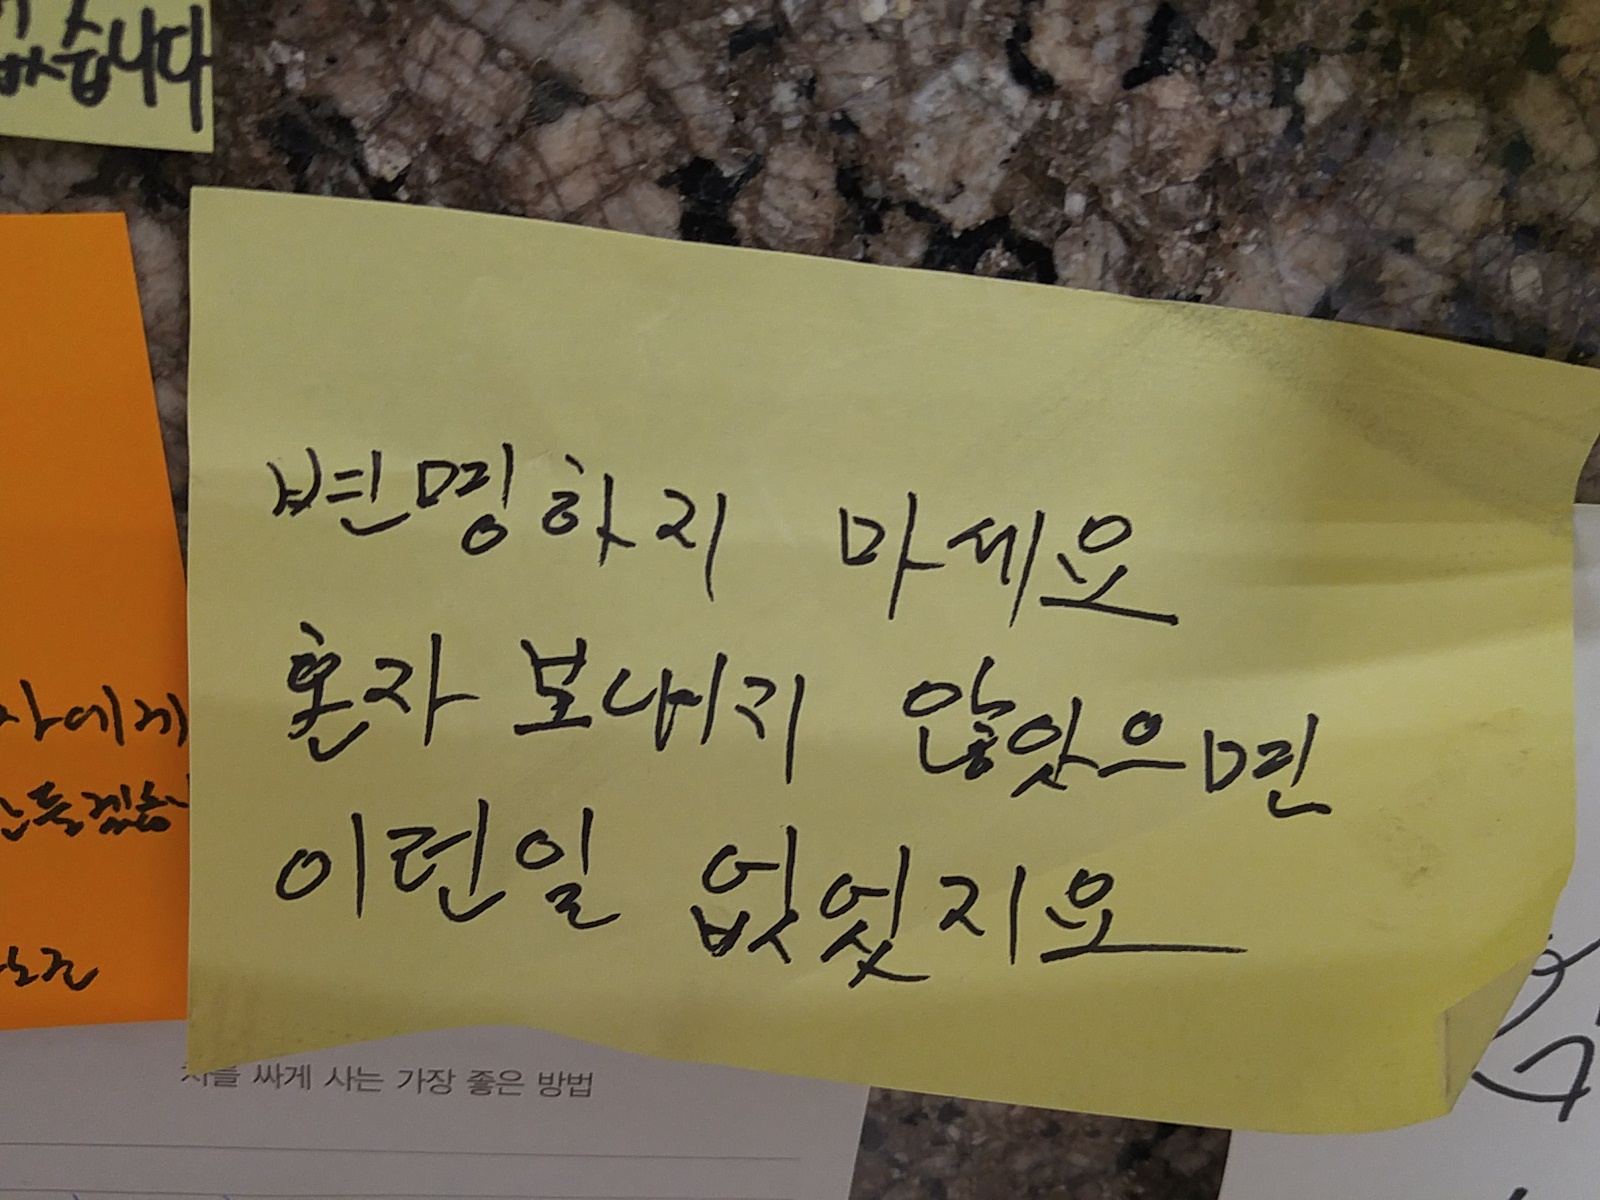 습니다
변명하지 마세요
혼자 보내지 않았으면
이런일 없었지요
에게
싸게 사는 가장 좋은 방법